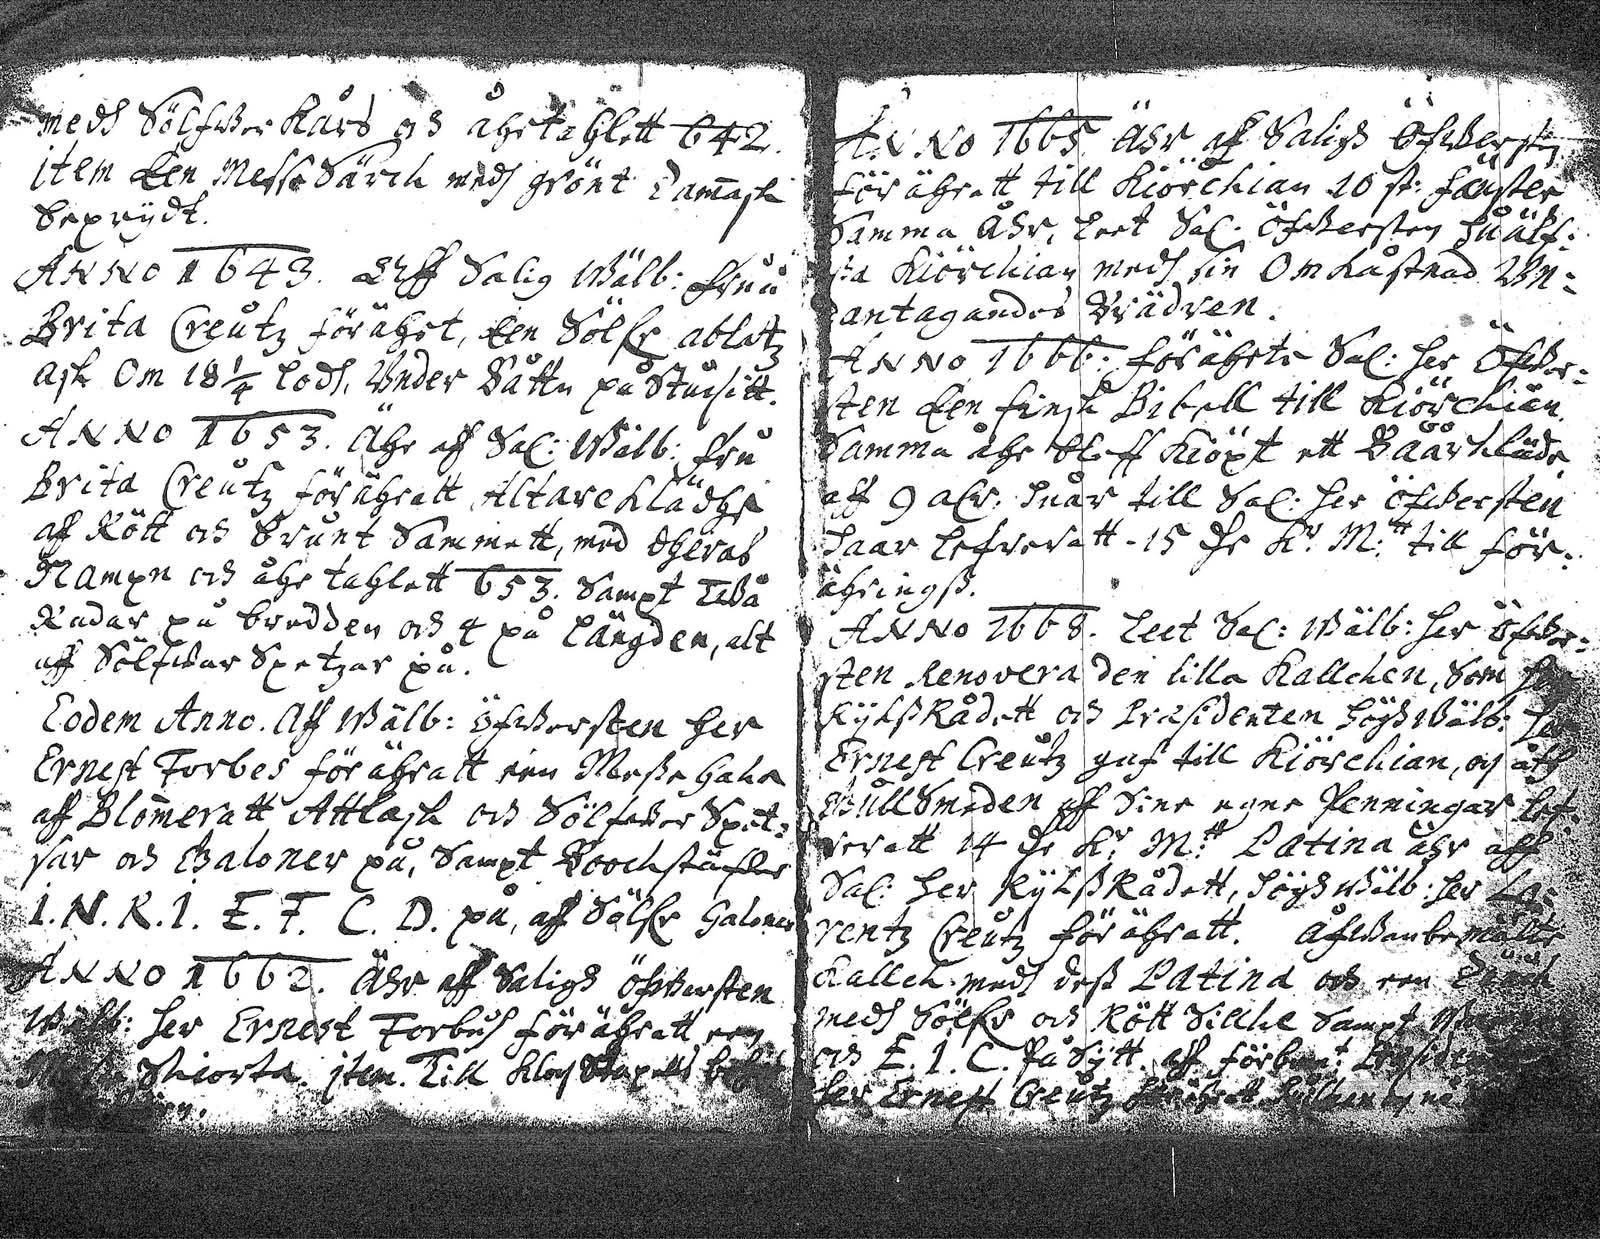 medh Sölfwer Kårs och åhrtahlett 642.
item Een Messe Särck medh grönt Dammask
beprydt.
ANNO 1643. Aff Salig Wälb: fruu
Brita Creütz förährt, Een Sölfr ablatz
ask Om 18 1/4 lodh, Under Båttn på Stucitt.
ANNO 1653. Åhr aff Sal: Wälb: fru
Brita Creütz förähratt Altare Klädhe
aff Rött och brunt Sammett, med theras
Nampn och åhr tahlett 653. Sampt Twå
Radar på bredden och 4 på Längden, alt
aff Sölfwer Spetzar på.
Eodem Anno. Aff Wälb: Öfwersten her
Ernest Forbes förähratt een Messe haka
aff Blommeratt Attlask och Sölfwer Spet=
sar och Galoner på, Sampt Boochstäfler
I. N. R. I. E. F. C. D. på, aff Sölfr Galoner
ANNO 1662. Åhr aff Saligh Öfwersten
Wälb: her Ernest Forbus förähratt een
Skiorta. item. Till Klock Stapels
ANNO 1665 Åhr aff Saligh Öfwersten
förähratt till Kiörckian 10 st: fänster
Samma Åhr, Leet Sal: Öfwersten hwälf=
wa Kiörckian medh sin Omkåstnad Un=
dantagandes Bräden.
ANNO 1666. förährte Sal: her Öfwer=
sten Een finsk Bibell till Kiörckian
Samma åhr bleff Kiöpt ett Båårkläde
aff 9 alr, huar till Sal: her Öfwersten
haar lefreratt - 15 dr Kr. M:tt till för=
ähringh.
ANNO 1668. Leet Sal: Wälb: her Öfwer=
sten Renovera den lilla Kallcken, Som her
RijkzRådett och Præsidenten höghWälb: her
Ernest Creütz gaf till Kiörckian, och åth
Gullsmeden aff Sine egne Penningar lef=
reratt 14 dr Kr M:tt Latina åhr aff
Sal: her RijkzRådett, höghwälb: her La=
rentz Creütz förähratt. Åfwanbemälte
Kallck medh dess Patina och een
medh Sölfr och Rött Sillke Sampt
och E. I. C. På Sytt. aff förbem:t
her Ernest Creütz